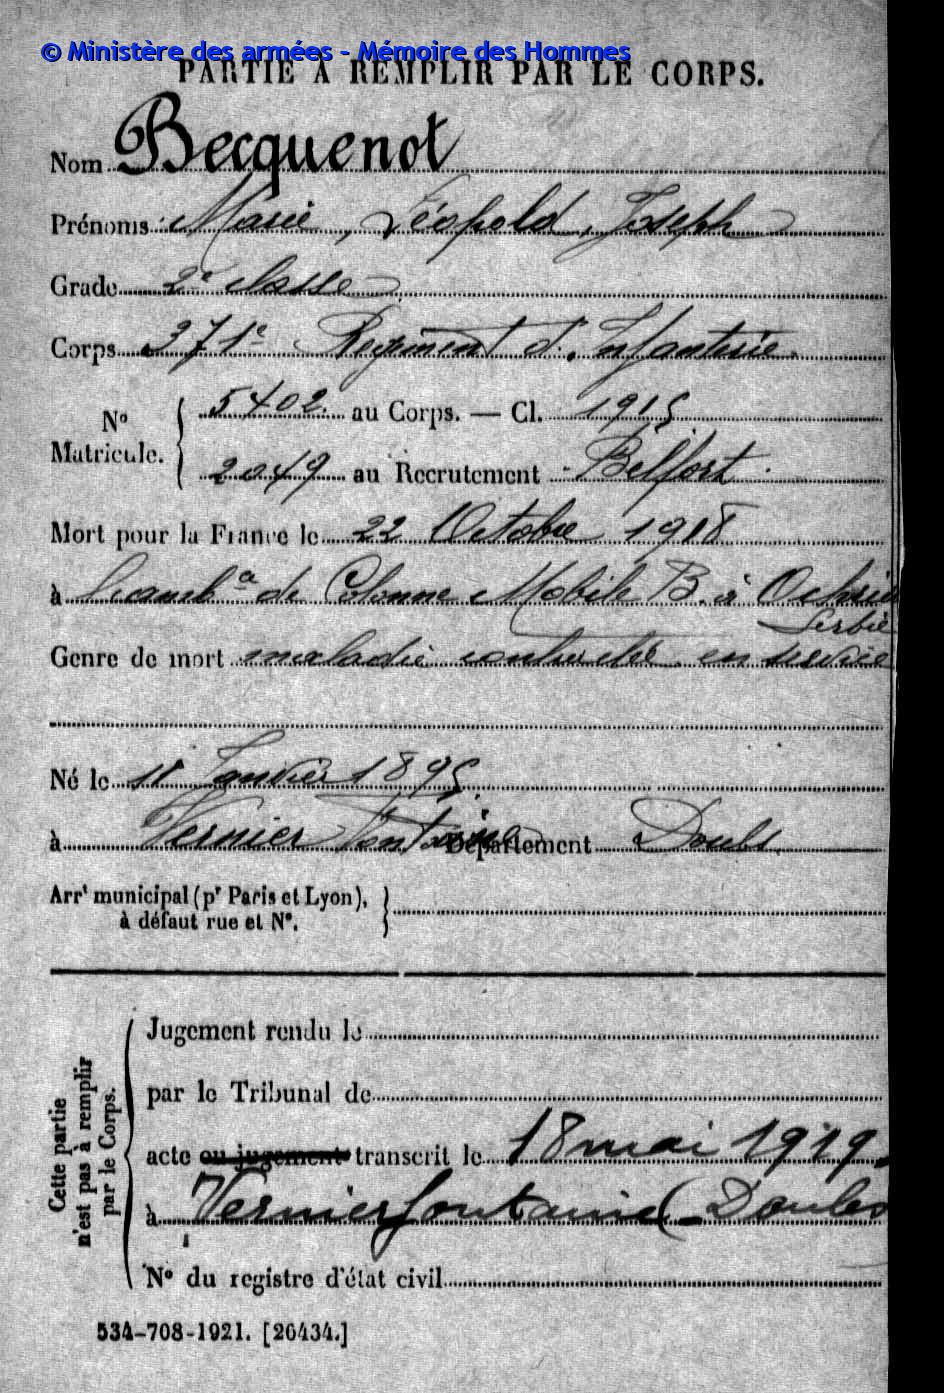 © Ministère des armées - Mémoire des Hommes
PARTIE À REMPLIR PAR LE CORPS.
Nom Becquenot
Prénoms Marie, Léopold, Joseph
Grade 2e classe
Corps 371e Régiment d'Infanterie
No Matricule. { 5402 au Corps. — Cl. 1915
2049 au Recrutement Belfort
Mort pour la France le 22 Octobre 1918
à l'ambce de Colonne Mobile B. à Ochrida
Serbie
Genre de mort maladie contractée en service
Né le 11 Janvier 1895
à Vernier Fontaine Département Doubs
Arrt municipal (pr Paris et Lyon),
à défaut rue et No.
Cette partie
n'est pas à remplir
par le Corps.
Jugement rendu le
par le Tribunal de
acte ou jugement transcrit le 18 mai 1919.
à Vernierfontaine (Doubs
No du registre d'état civil
534-708-1921. [26434.]